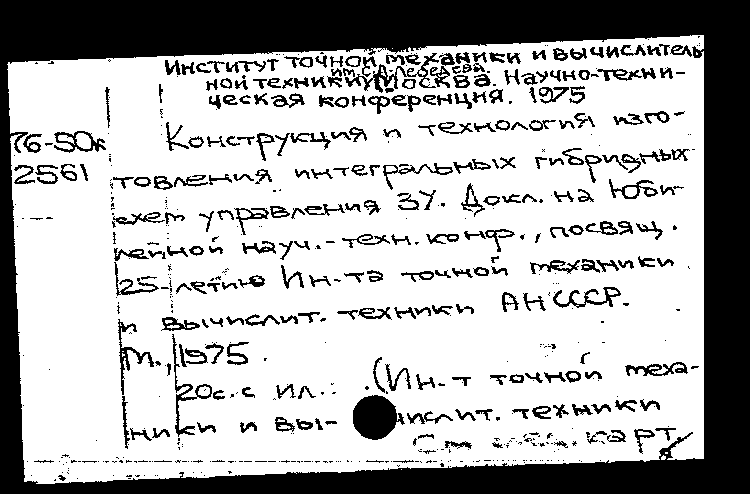 Институт точной механики и вычислитель
им. С.А. Лебедева
ной техники, Москва. Научно-техни-
ческая конференция. 1975
76-50к
2561
Конструкция и технология изго-
товления интегральных гибридных
схем управления ЗУ. Докл. на Юби-
лейной науч.-техн. конф., посвящ.
25-летию Ин-та точной механики
и вычислит. техники АН СССР.
М., 1975.
20с. с ил.. (Ин-т точной меха-
ники и вычислит. техники
См. карт.